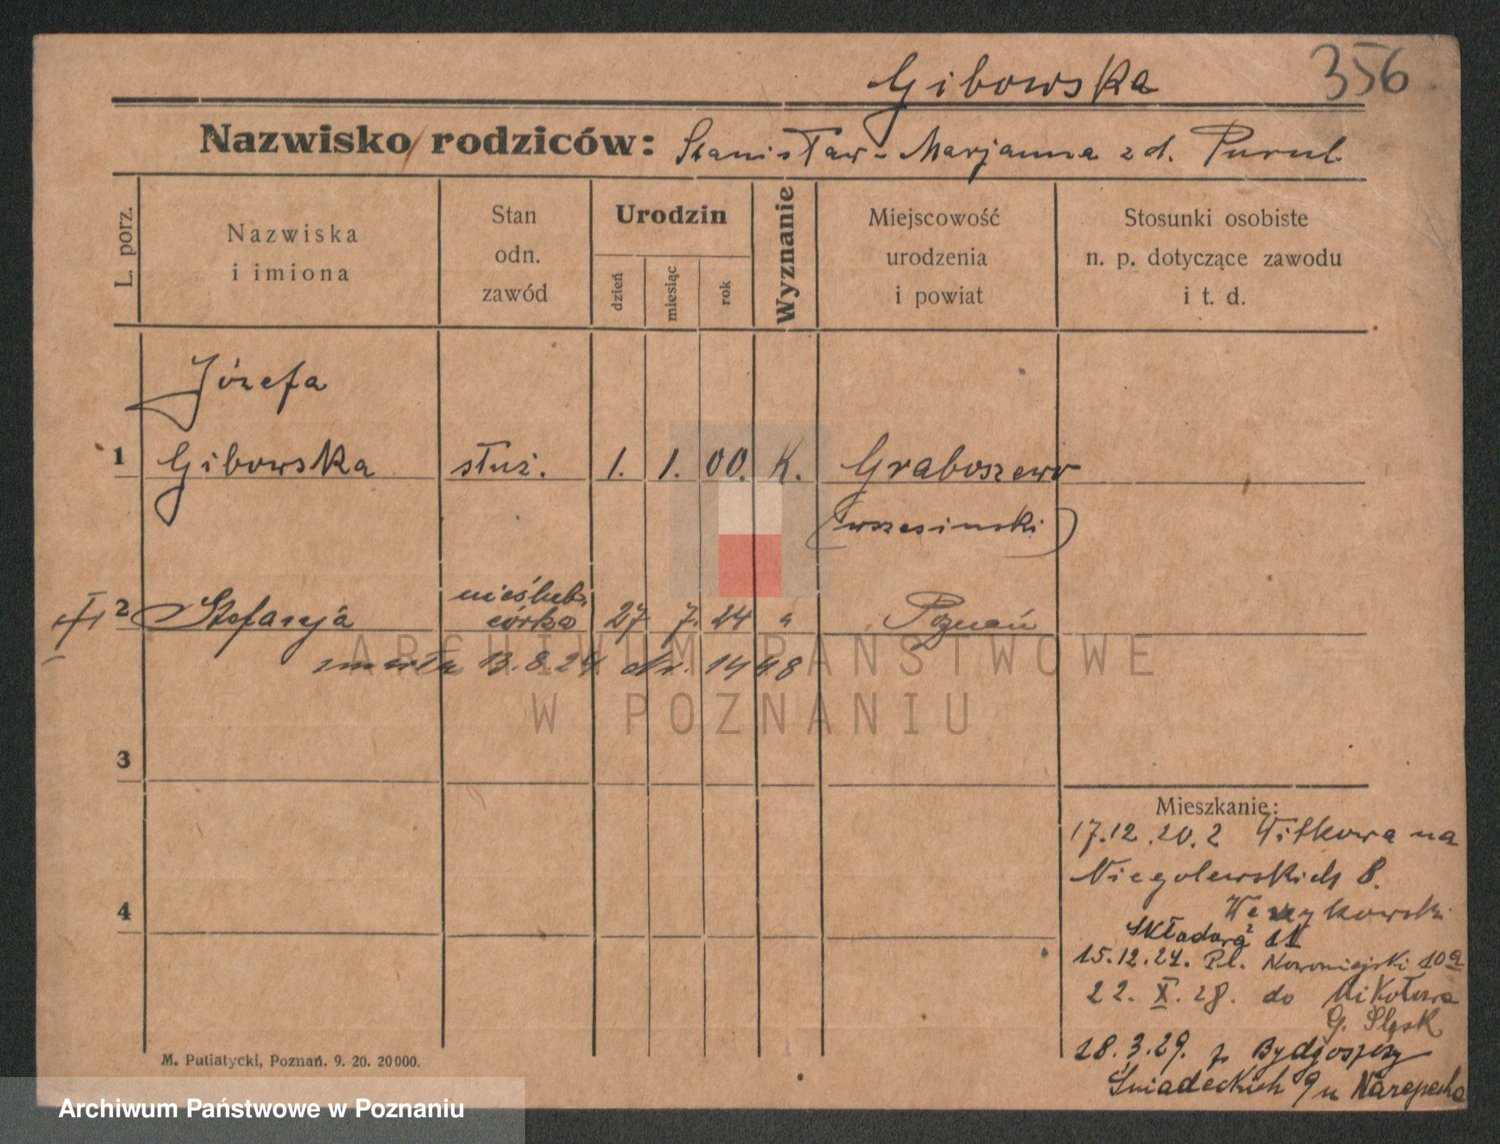 Gibowska 356
Nazwisko rodziców: Stanisław - Marjanna z d. Purul
L. porz.
Nazwiska
i imiona
Stan
odn.
zawód
Urodzin
dzień
miesiąc
rok
Wyznanie
Miejscowość
urodzenia
i powiat
Stosunki osobiste
n. p. dotyczące zawodu
i t. d.
Józefa
1 Gibowska służ. 1. 1. 00. K. Graboszewo
(wrzesinski)
nieślub.
2 Stefanja córka 27 7. 24 " Poznań
zmarła 13.8.24. Nr. 1448
ARCHIWUM PAŃSTWOWE
W POZNANIU
3
4
Mieszkanie:
17.12.20. z Witkowa na
Niegolewskich 8.
Składowa 11
15.12.27. Pl. Nowomiejski 10a
22. X. 28. do Mikołowa
G. Śląsk
18.3.29. z Bydgoszczy
Śniadeckich 9 u
M. Putiatycki, Poznań. 9. 20. 20000.
Archiwum Państwowe w Poznaniu